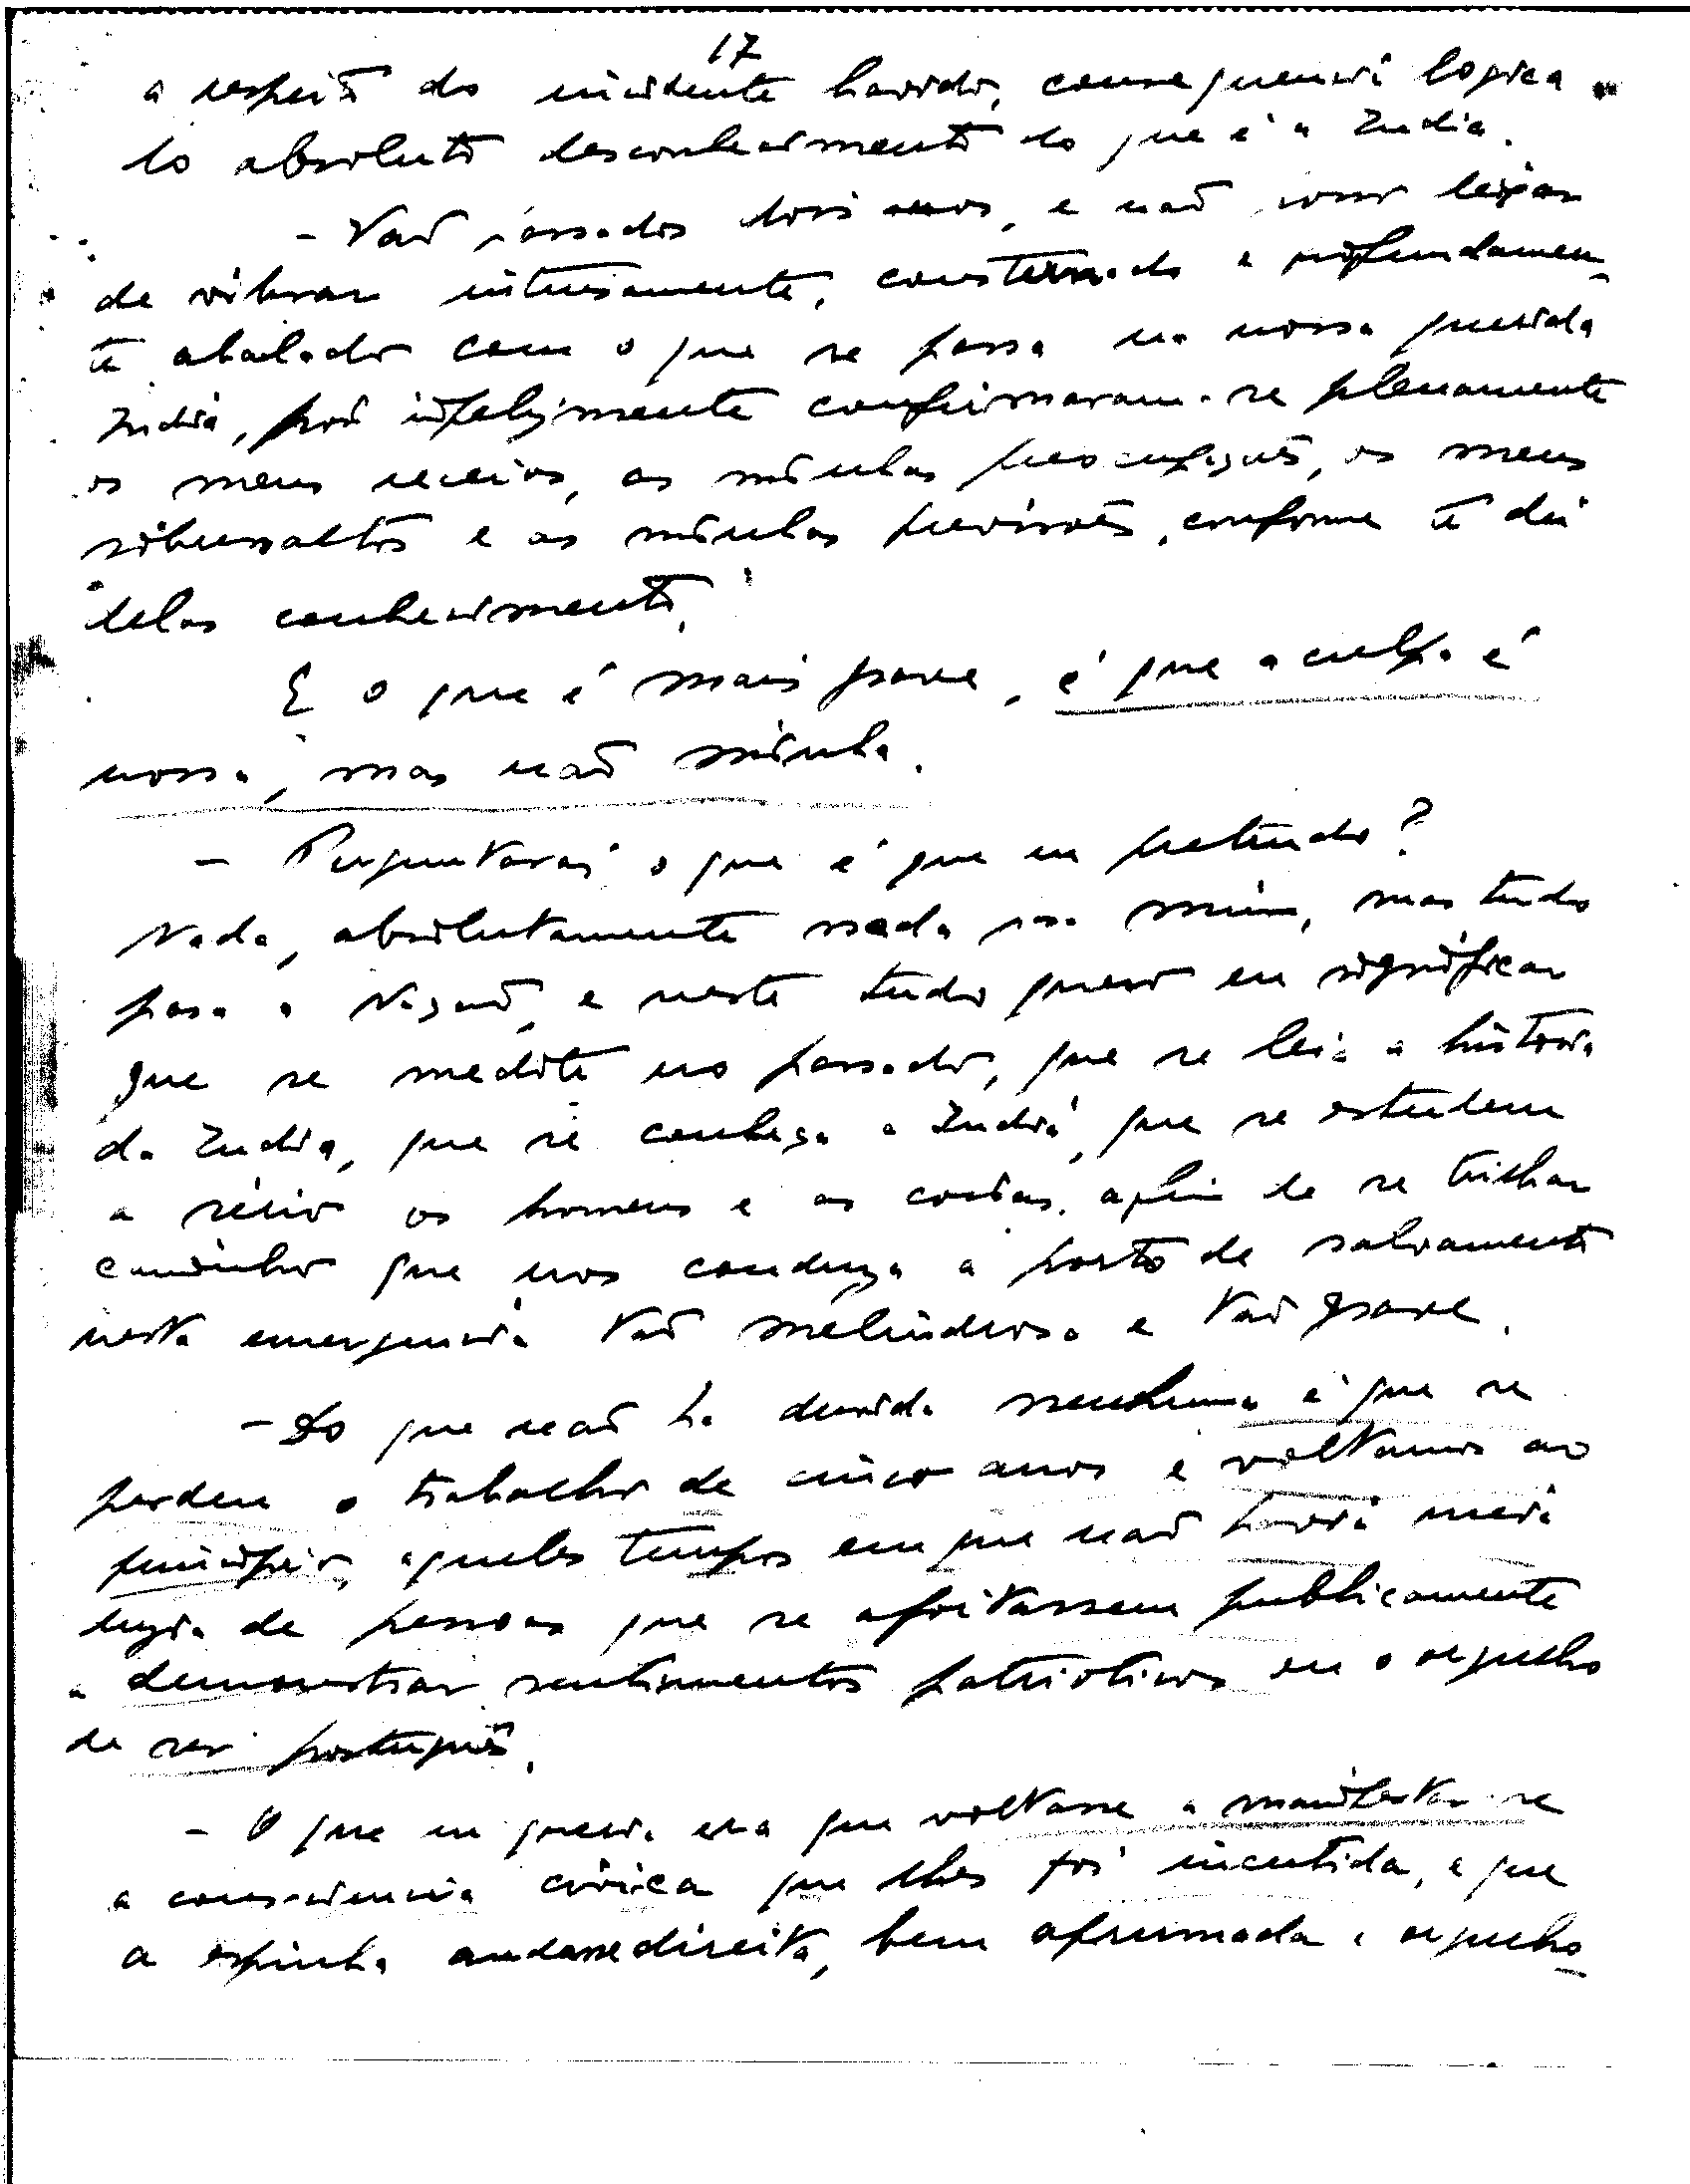 17
a respeito do incidente havido, consequencia logica
do absoluto desconhecimento do que é a India.
- Vaõ passados dois anos, e naõ posso deixar
de vibrar intensamente, consternado e profundamen-
te abalado com o que se passa na nossa querida
India, pois infelizmente confirmaram-se plenamente
os meus receios, as minhas preocupações, os meus
sobressaltos e as minhas previsões, conforme te dei
delas conhecimento.
E o que é mais grave, é que a culpa é
nossa, mas naõ minha.
- Perguntarás o que é que eu pretendo?
Nada, absolutamente nada pa mim, mas tudo
para a Naçaõ, e neste tudo quero eu significar
que se medite no passado, que se leia a historia
da India, que se conheça a India, que se estudem
a sério os homens e as coisas, afim de se trilhar
caminho que nos conduza a porto de salvamento
nesta emergencia taõ melindrosa e taõ grave.
- Do que naõ ha duvida nenhuma é que se
perdeu o trabalho de cinco anos e voltamos ao
principio, aqueles tempos em que naõ havia meia
duzia de pessoas que se afoitassem publicamente
a demonstrar sentimentos patrioticos ou o orgulho
de ser português.
- O que eu queria era que voltasse a manifestar-se
a consciencia civica que lhes foi incutida, e que
a espinha andasse direita, bem aprumada e orgulho-